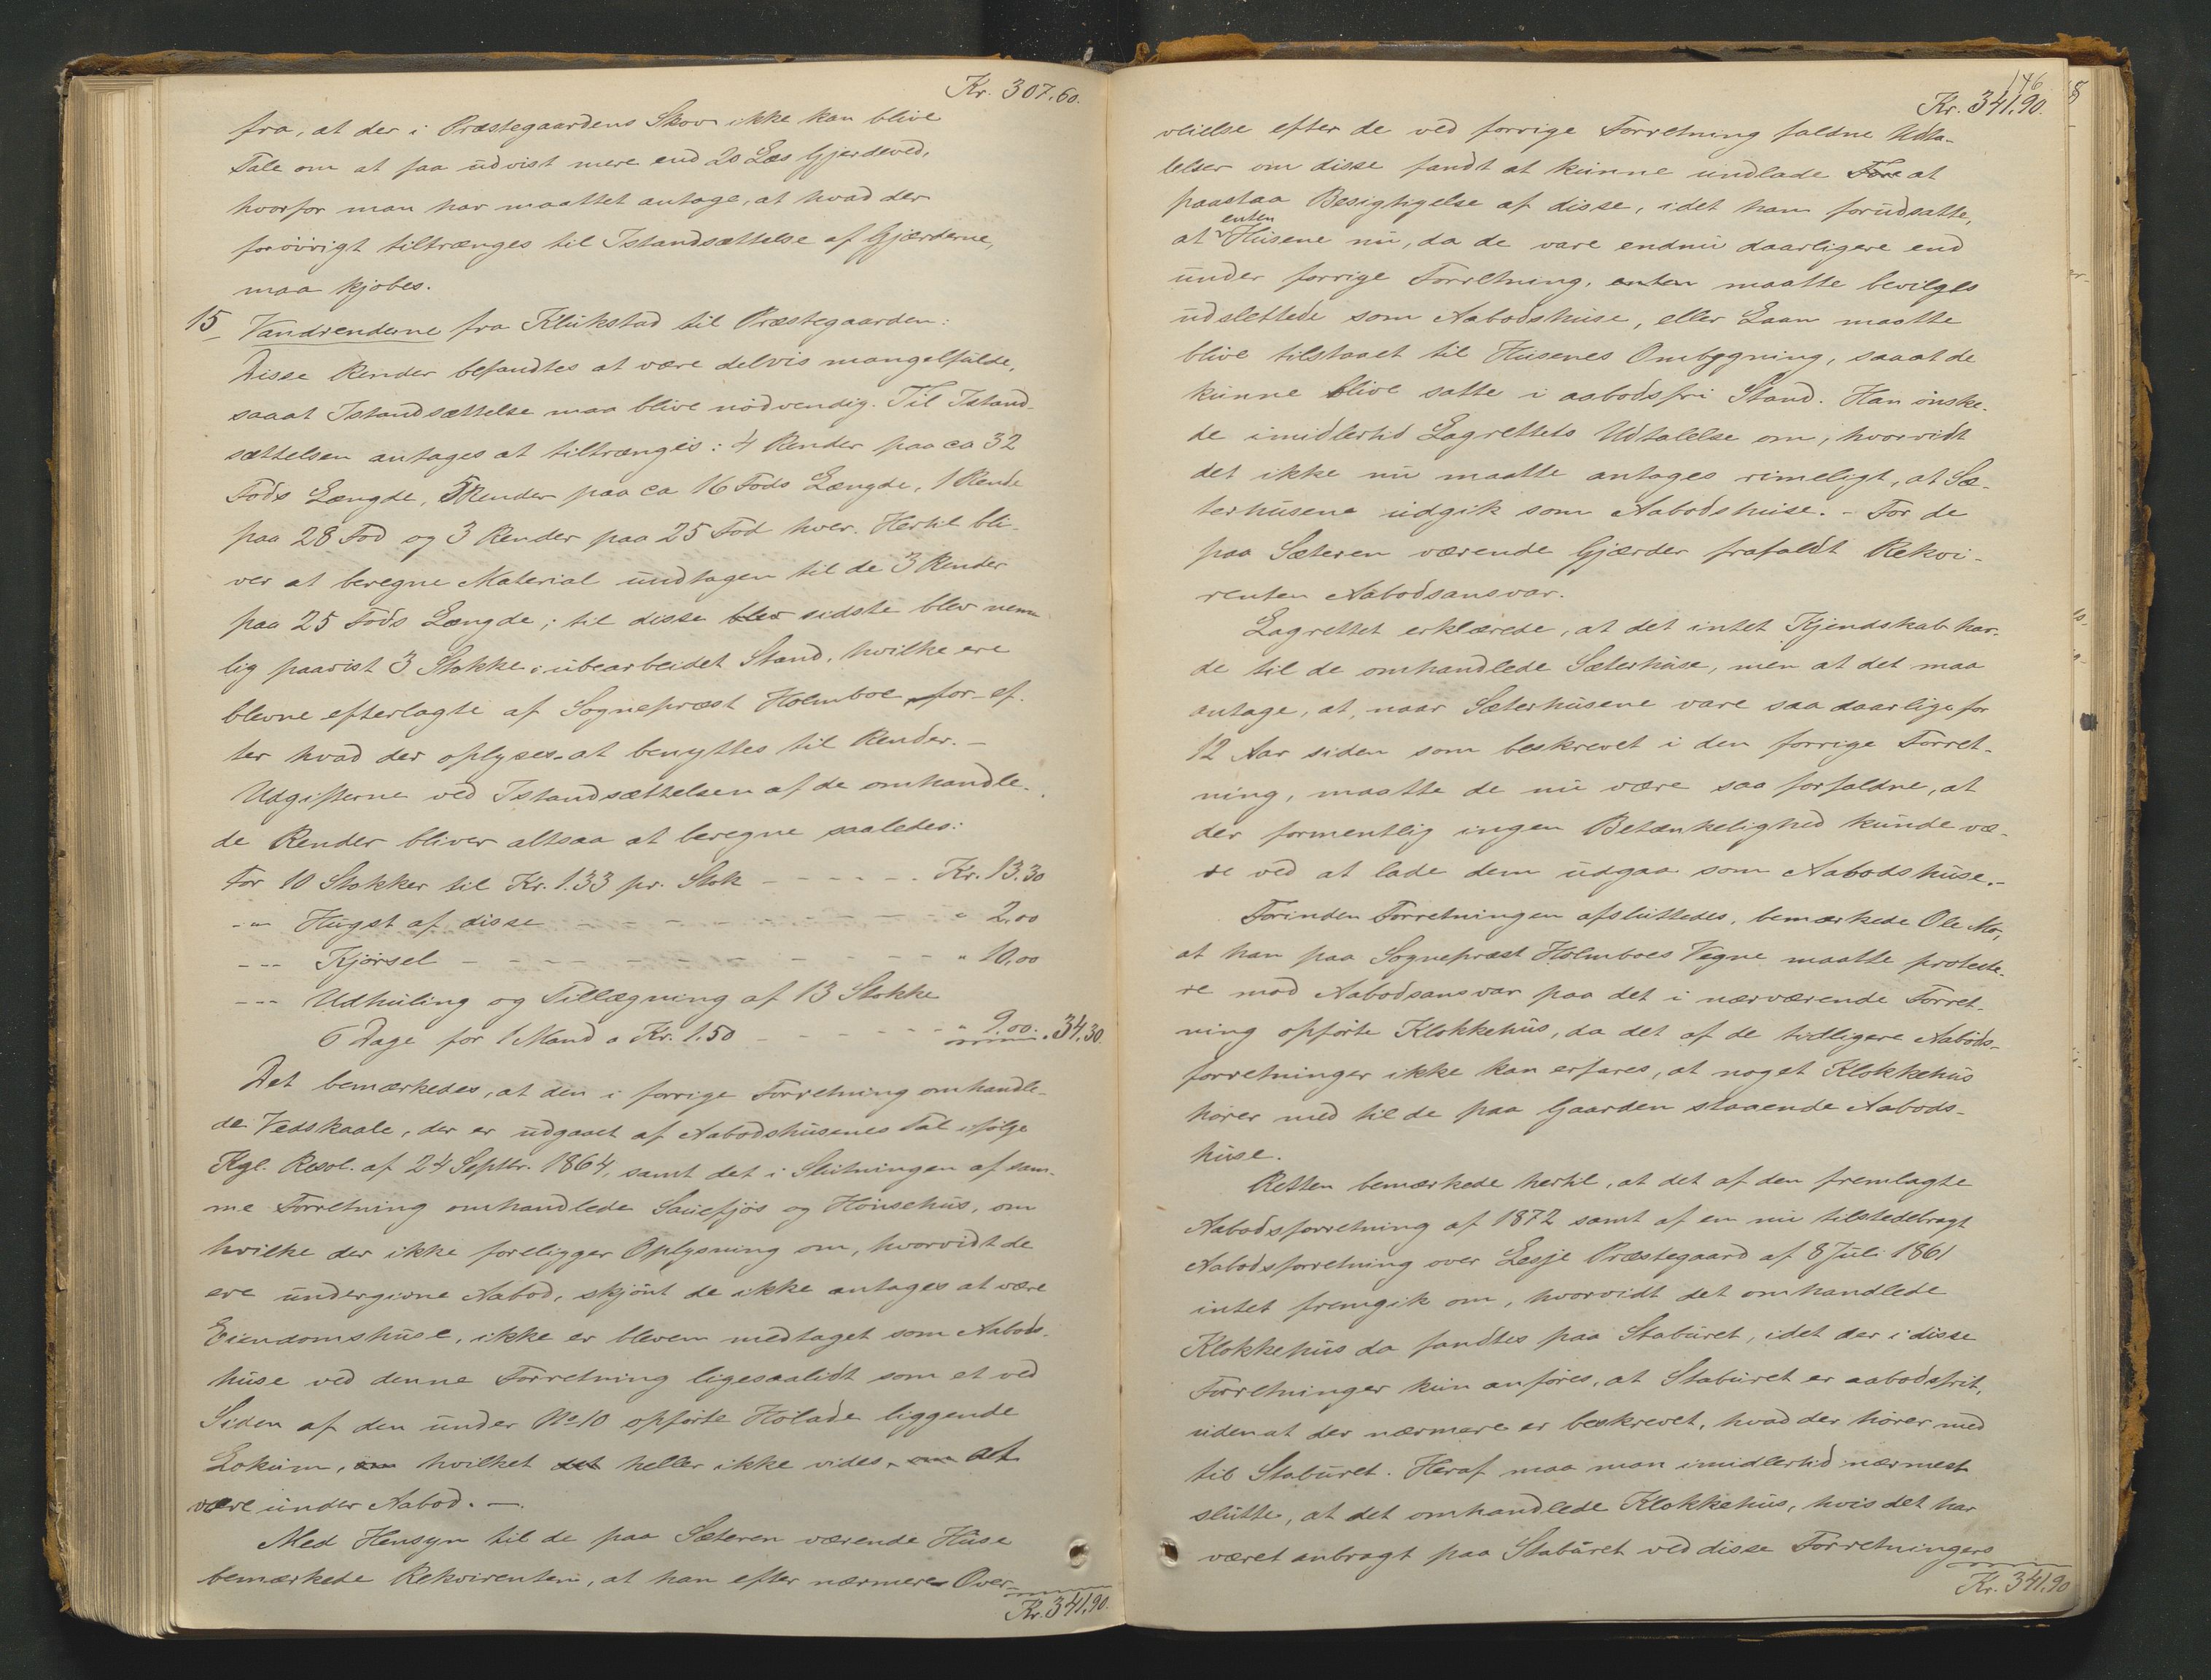 Kr. 307.60.
fra, at der i Præstegaardens Skov ikke kan blive
Tale om at faa udvist mere end 20 Læs Gjerdeved,
hvorfor man har maattet antage, at hvad der
forövrigt tiltrænges til Istandsættelse af Gjærderne,
maa kjøbes.
15 Vandrenderne fra Klukstad til Præstegaarden:
Disse Render befandtes at være delvis mangelfulde,
saaat Istandsættelse maa blive nödvendig. Til Istand-
sættelsen antages at tiltrænges: 4 Render paa ca 32
Fods Længde, 5 Render paa ca 16 Fods Længde, 1 Rende
paa 28 Fod og 3 Render paa 25 Fod hver. Hertil bli-
ver at beregne Material undtagen til de 3 Render
paa 25 Fods Længde; til disse blev sidste blev nem-
lig paavist 3 Stokke i ubearbeidet Stand, hvilke ere
blevne efterlagte af Sognepræst Holmboe for ef-
ter hvad der oplyses at benyttes til Render. -
Udgifterne ved Istandsættelsen af de omhandle-
de Render bliver altsaa at beregne saaledes:
For 10 Stokker til Kr. 1.33 pr. Stok - - - - - Kr. 13.30
-"- Hugst af disse - - - - - - - - - " 2.00
--- Kjørsel - - - - - - - - - - - " 10.00
--- Udhuling og Tillægning af 13 Stokke
6 Dage for 1 Mand a Kr. 1.50 - - - - - " 9.00. " 34.30.
Det bemærkedes, at den i forrige Forretning omhandle-
de Vedskaale, der er udgaaet af Aabodshusenes Tal ifölge
Kgl. Resol. af 24 Septbr. 1864, samt det i Slutningen af sam-
me Forretning omhandlede Sauefjös og Hönsehus, om
hvilke der ikke foreligger Oplysning om, hvorvidt de
ere undergivne Aabod, skjönt de ikke antages at være
Eiendomshuse, ikke er bleven medtaget som Aabods-
huse ved denne Forretning ligesaalidt som et ved
Siden af den under No 10 opförte Hölade liggende
Lokum, om hvilket det heller ikke vides, om at
være under Aabod. -.
Med Hensyn til de paa Sæteren værende Huse
bemærkede Rekvirenten, at han efter nærmere Over-
Kr. 341.90.
146
Kr. 341.90.
veielse efter de ved forrige Forretning faldne Udta-
lelser om disse fandt at kunne undlade Fore at
paastaa Besigtigelse af disse, idet han forudsatte,
enten
at Husene nu, da de vare endnu daarligere end
under forrige Forretning, enten maatte bevilges
udslettede som Aabodshuse, eller Laan maatte
blive tilstaaet til Husenes Ombygning, saaat de
kunne blive satte i aabodsfri Stand. Han önske-
de imidlertid Lagrettets Udtalelse om, hvorvidt
det ikke nu maatte antages rimeligt, at Sæ-
terhusene udgik som Aabodshuse. - For de
paa Sæteren værende Gjærder frafaldt Rekvi-
renten Aabodsansvar.
Lagrettet erklærede, at det intet Kjendskab hav-
de til de omhandlede Sæterhuse, men at det maa
antage, at, naar Sæterhusene vare saa daarlige for
12 Aar siden som beskrevet i den forrige Forret-
ning, maatte de nu være saa forfaldne, at
der formentlig ingen Betænkelighed kunde væ-
re ved at lade dem udgaa som Aabodshuse.-
Forinden Forretningen afsluttedes, bemærkede Ole Mo,
at han paa Sognepræst Holmboes Vegne maatte proteste-
re mod Aabodsansvar paa det i nærværende Forret-
ning opförte Klokkehus, da det af de tidligere Aabods-
forretninger ikke kan erfares, at noget Klokkehus
hörer med til de paa Gaarden staaende Aabods-
huse.
Retten bemærkede hertil, at det af den fremlagte
Aabodsforretning af 1872 samt af en nu tilstedebragt
Aabodsforretning over Lesje Præstegaard af 8 Juli 1861
intet fremgik om, hvorvidt det omhandlede
Klokkehus da fandtes paa Staburet, idet der i disse
Forretninger kun anföres, at Staburet er aabodsfrit,
uden at der nærmere er beskrevet, hvad der hörer med
til Staburet. Heraf maa man imidlertid nærmest
slutte, at det omhandlede Klokkehus, hvis det har
været anbragt paa Staburet ved disse Forretningers
Kr. 341.90